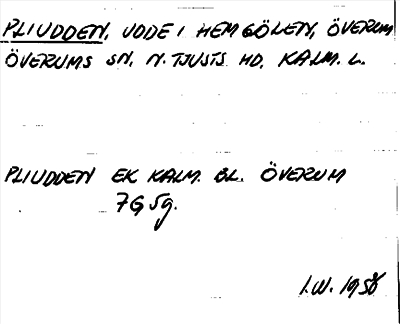 PLIUDDEN, UDDE I HEMGÖLEN, ÖVERUM
ÖVERUMS SN, N. TJUSTS HD, KALM. L.
PLIUDDEN EK KALM. BL. ÖVERUM
7G 5g.
I.W. 1956